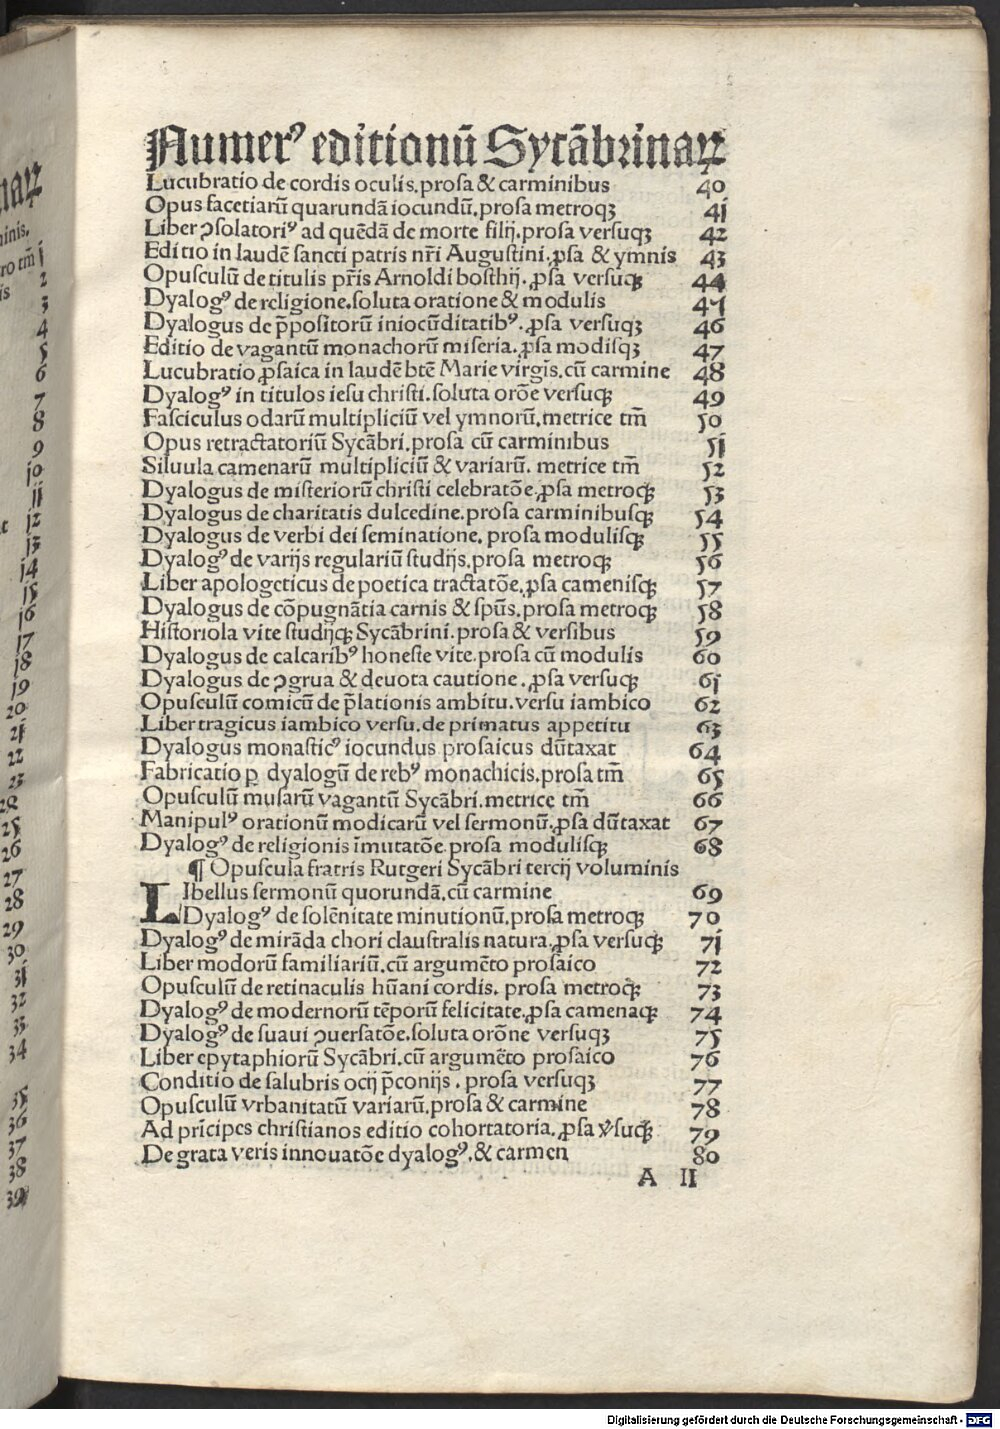 Numerꝰ editionū Sycābrinaꝝ
Lucubratio de cordis oculis.prosa & carminibus 40
Opus facetiarū quarundā iocundū.prosa metroqꝫ 41
Liber ꝯsolatoriꝰ ad quēdā de morte filij.prosa versuqꝫ 42
Editio in laudē sancti patris nr̄i Augustini.ꝓsa & ymnis 43
Opusculū de titulis pr̄is Arnoldi bosthij.ꝓsa versuqꝫ 44
Dyalogꝰ de religione.soluta oratione & modulis 45
Dyalogus de p̄positorū iniocūditatibꝰ.ꝓsa versuqꝫ 46
Editio de vagantū monachorū miseria.ꝓsa modisqꝫ 47
Lucubratio ꝓsaica in laudē btē Marie virgīs.cū carmine 48
Dyalogꝰ in titulos iesu christi.soluta orōe versuqꝫ 49
Fasciculus odarū multipliciū vel ymnorū.metrice tm̄ 50
Opus retractatoriū Sycābri.prosa cū carminibus 51
Siluula camenarū multipliciū & variarū. metrice tm̄ 52
Dyalogus de misteriorū christi celebratōe.ꝓsa metroqꝫ 53
Dyalogus de charitatis dulcedine.prosa carminibusqꝫ 54
Dyalogus de verbi dei seminatione. prosa modulisqꝫ 55
Dyalogꝰ de varijs regulariū studijs.prosa metroqꝫ 56
Liber apologeticus de poetica tractatōe.ꝓsa camenisqꝫ 57
Dyalogus de cōpugnātia carnis & spūs.prosa metroqꝫ 58
Historiola vite studijqꝫ Sycābrini.prosa & versibus 59
Dyalogus de calcaribꝰ honeste vite.prosa cū modulis 60
Dyalogus de ꝯgrua & deuota cautione.ꝓsa versuqꝫ 61
Opusculū comicū de p̄lationis ambitu.versu iambico 62
Liber tragicus iambico versu.de primatus appetitu 63
Dyalogus monasticꝰ iocundus prosaicus dūtaxat 64
Fabricatio ꝑ dyalogū de rebꝰ monachicis.prosa tm̄ 65
Opusculū musarū vagantū Sycābri.metrice tm̄ 66
Manipulꝰ orationū modicarū vel sermonū.ꝓsa dūtaxat 67
Dyalogꝰ de religionis īmutatōe prosa modulisqꝫ 68
¶ Opuscula fratris Rutgeri Sycābri tercij voluminis
Libellus sermonū quorundā.cū carmine 69
Dyalogꝰ de solēnitate minutionū.prosa metroqꝫ 70
Dyalogꝰ de mirāda chori claustralis natura.ꝓsa versuqꝫ 71
Liber modorū familiariū.cū argumēto prosaico 72
Opusculū de retinaculis hūani cordis. prosa metroqꝫ 73
Dyalogꝰ de modernorū tēporū felicitate.ꝓsa camenaqꝫ 74
Dyalogꝰ de suaui ꝯuersatōe.soluta orōne versuqꝫ 75
Liber epytaphiorū Sycābri.cū argumēto prosaico 76
Conditio de salubris ocij p̄conijs . prosa versuqꝫ 77
Opusculū vrbanitatū variarū.prosa & carmine 78
Ad prīcipes christianos editio cohortatoria.ꝓsa v̄suqꝫ 79
De grata veris innouatōe dyalogꝰ.& carmen 80
A II
naꝝ
minis.
ro tm̄ 1
is 2
3
4
5
6
7
8
9
10
11
12
13
14
15
16
17
18
19
20
21
22
23
25
26
27
28
29
30
31
32
33
34
35
36
37
38
39
Digitalisierung gefördert durch die Deutsche Forschungsgemeinschaft - DFG